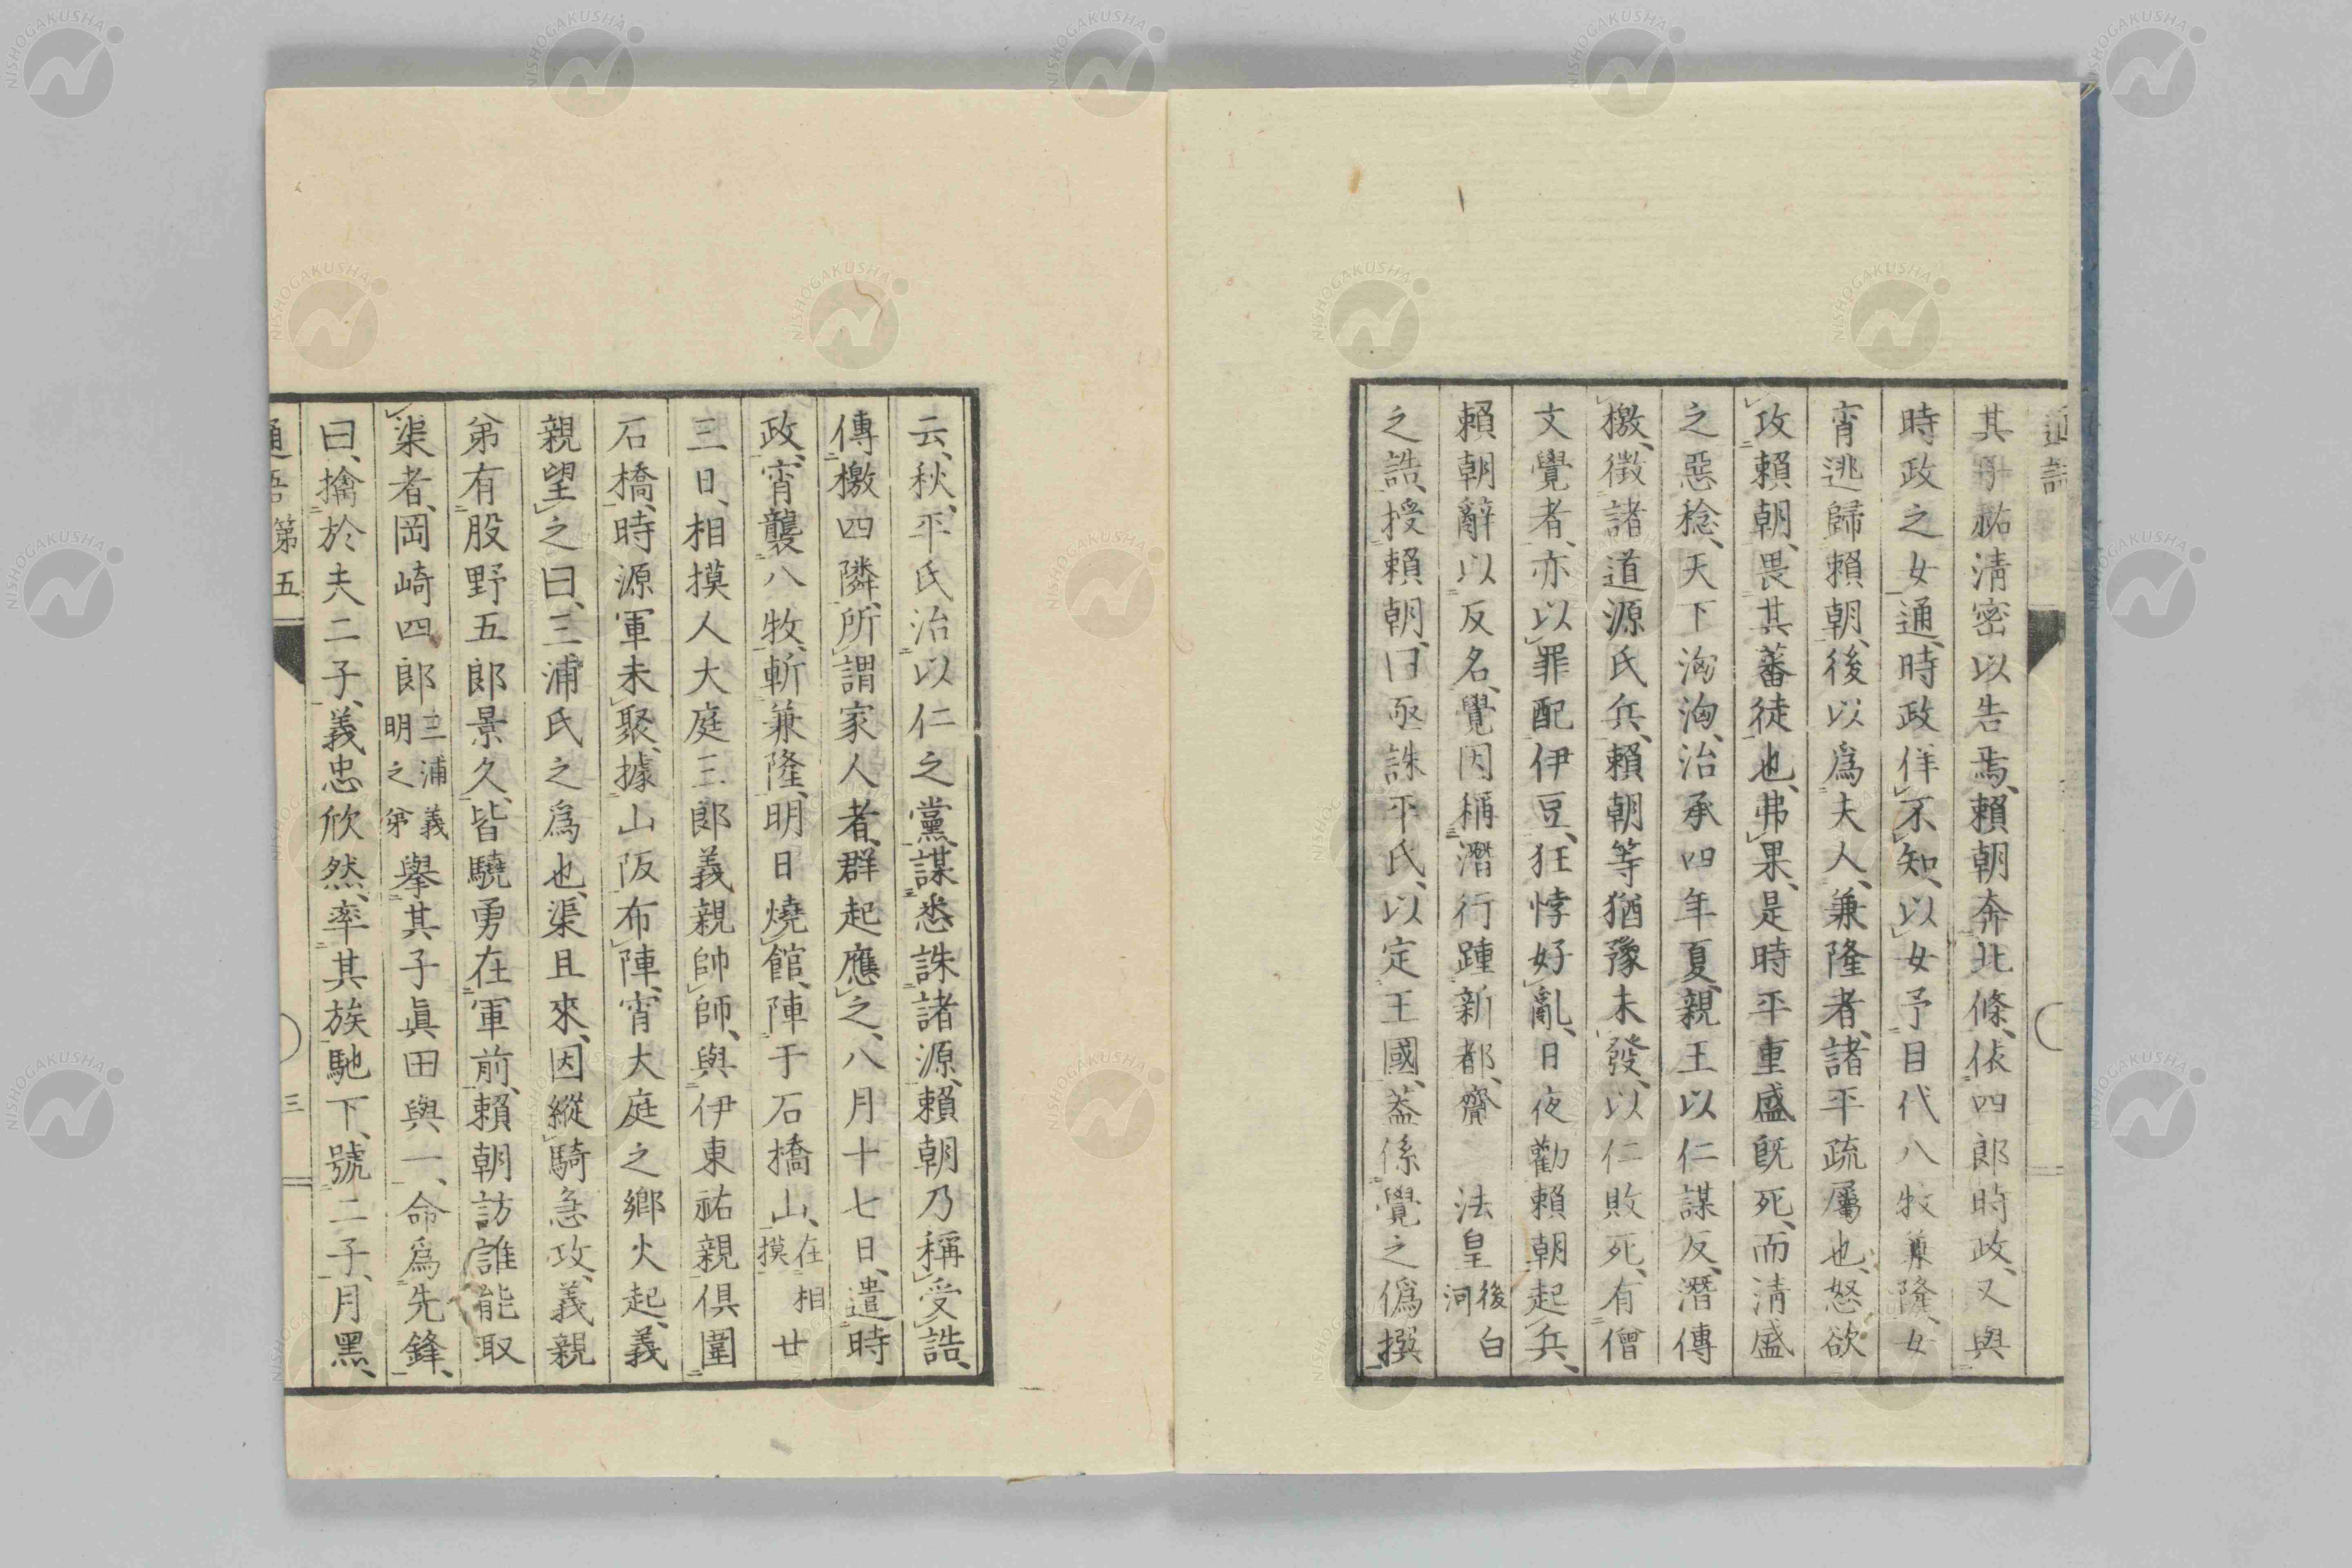 其子祐淸密以告焉、賴朝奔北條、依四郎時政、又與
時政之女通、時政佯不知、以女予目代八牧兼隆、女
宵逃歸賴朝、後以爲夫人、兼隆者、諸平疏屬也、怒欲
攻賴朝、畏其蕃徒也、弗果、是時平重盛旣死、而淸盛
之惡稔、天下洶洶、治承四年夏、親王以仁謀反、潛傳
檄、徵諸道源氏兵、賴朝等猶豫未發、以仁敗死、有僧
文覺者、亦以罪配伊豆、狂悖好亂、日夜勸賴朝起兵、
賴朝辭以反名、覺因稱潛行踵新都、齎 法皇後白河
之誥、授賴朝、曰亟誅平氏、以定王國、葢係覺之僞撰
云、秋、平氏治以仁之黨、謀悉誅諸源、賴朝乃稱受誥、
傳檄四隣、所謂家人者、群起應之、八月十七日、遣時
政、宵襲八牧、斬兼隆、明日燒館、陣于石橋山、在相摸廿
三日、相摸人大庭三郎義親帥師、與伊東祐親俱圍
石橋、時源軍未聚、據山阪布陣、宵大庭之鄉火起、義
親望之曰、三浦氏之爲也、渠且來、因縱騎急攻、義親
弟有股野五郎景久、皆驍勇在軍前、賴朝訪誰能取
渠者、岡崎四郎三浦義明之弟擧其子眞田與一、命爲先鋒、
曰、擒於夫二子、義忠欣然、率其族馳下、號二子、月黑、
通語第五
三
NISHOGAKUSHA